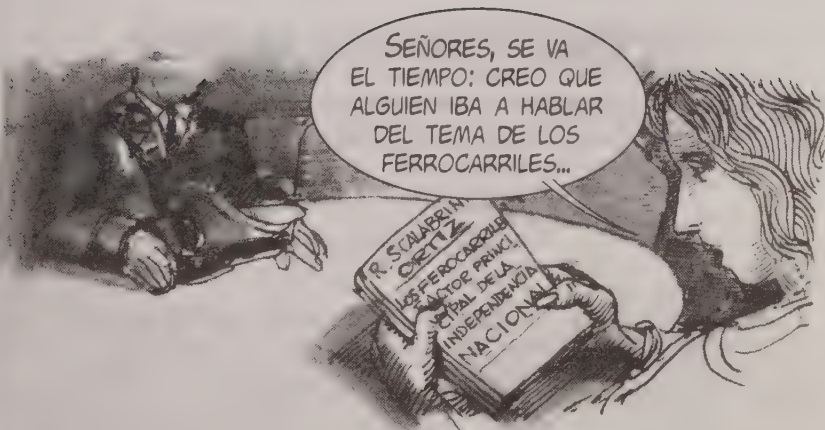 SEÑORES, SE VA
EL TIEMPO: CREO QUE
ALGUIEN IBA A HABLAR
DEL TEMA DE LOS
FERROCARRILES...
R. SCALABRINI
ORTIZ
LOS FEROCARRILE
FACTOR PRINCI
CIPAL DE LA
INDEPENDENCIA
NACIONAL